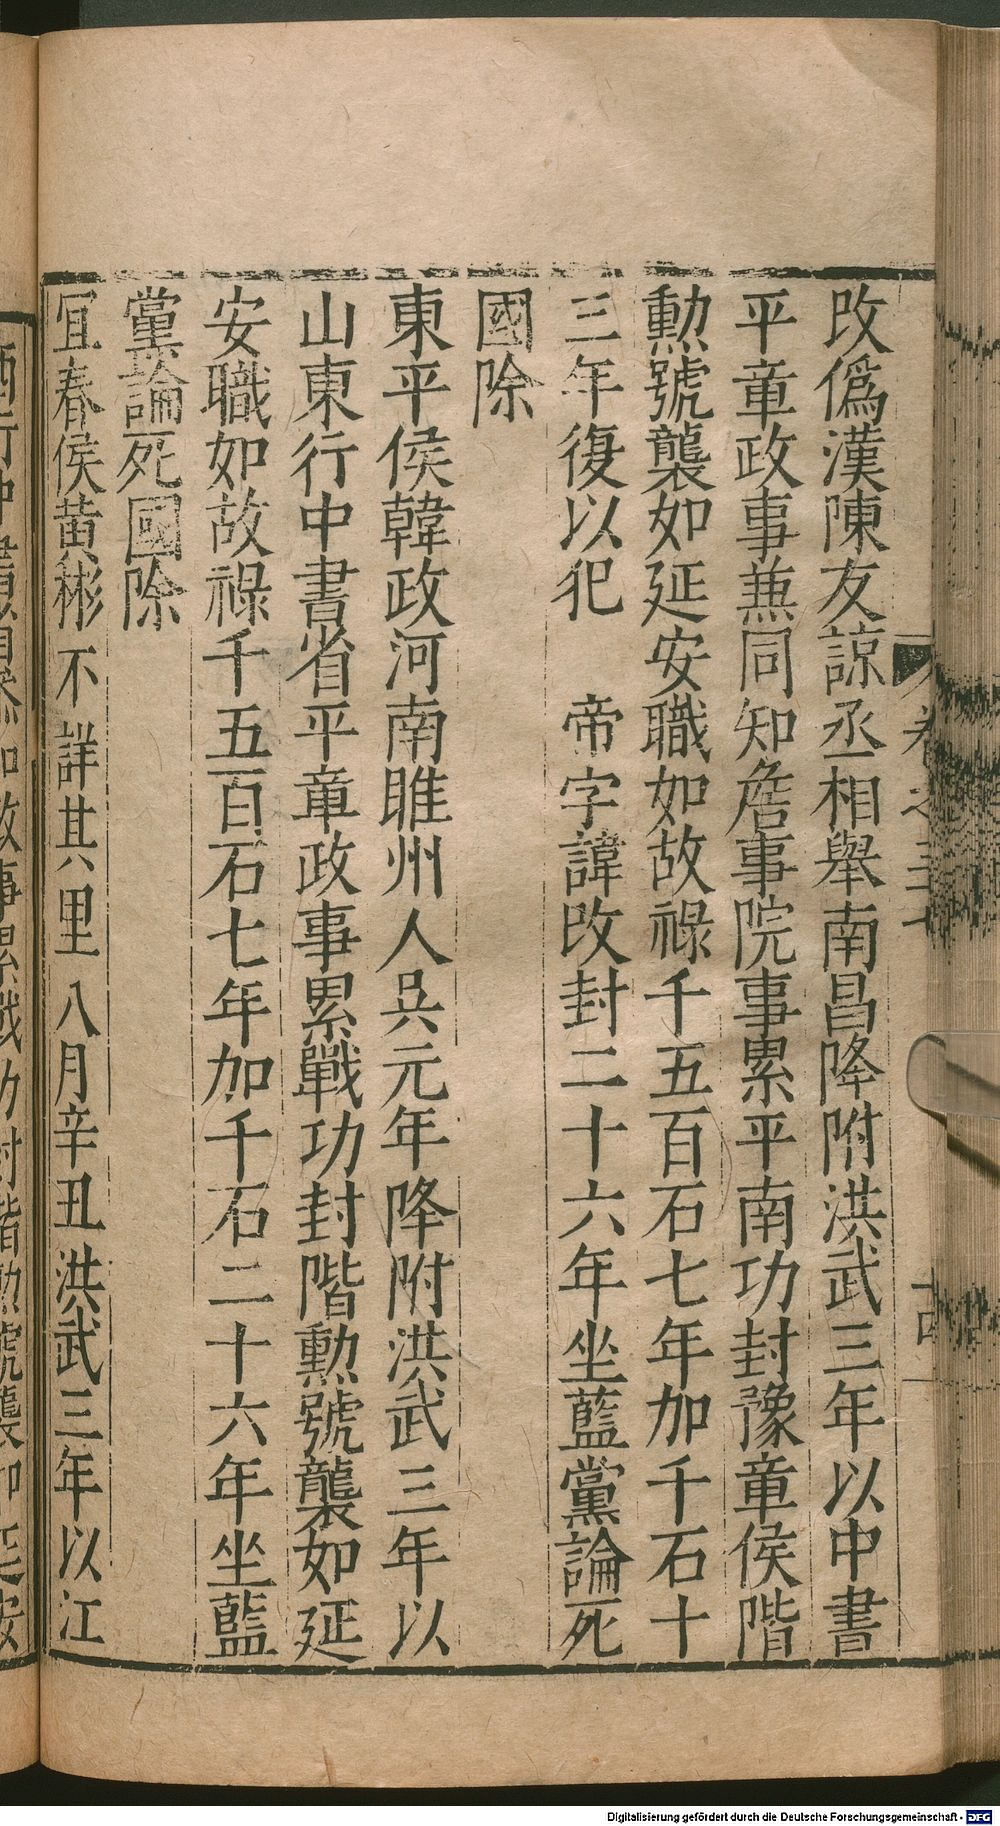 改僞漢陳友諒丞相舉南昌降附洪武三年以中書
平章政事兼同知詹事院事累平南功封豫章侯階
勲號襲如延安職如故祿千五百石七年加千石十
三年復以犯　帝字諱改封二十六年坐藍黨論死
國除
東平侯韓政河南睢州人吳元年降附洪武三年以
山東行中書省平章政事累戰功封階勲號襲如延
安職如故祿千五百石七年加千石二十六年坐藍
黨論死國除
冝春侯黄彬不詳其里八月辛丑洪武三年以江
Digitalisierung gefördert durch die Deutsche Forschungsgemeinschaft - DFG